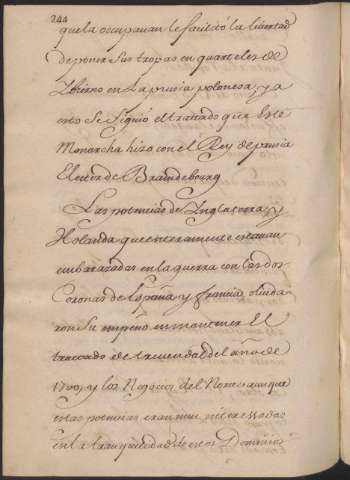 244
que la occupauan le facilitó la libertad
de poner sus tropas en quarteles de
Ybierno en la prusia polonesa, y a
esto se siguió el trattado que este
Monarcha hizo con el Rey de prusia
Elector de Brandebourg
Las potencias de Ynglaterra, y
Holanda que enteramente estauan
embarazadas en la guerra con las dos
Coronas de España, y francia, oluida-
ron su empeño en mantener El
trattado de trauendal del año de
1700, y los Negocios del Norte aunque
estas potencias eran mui interessadas
en la tranquilidad de estos Dominios